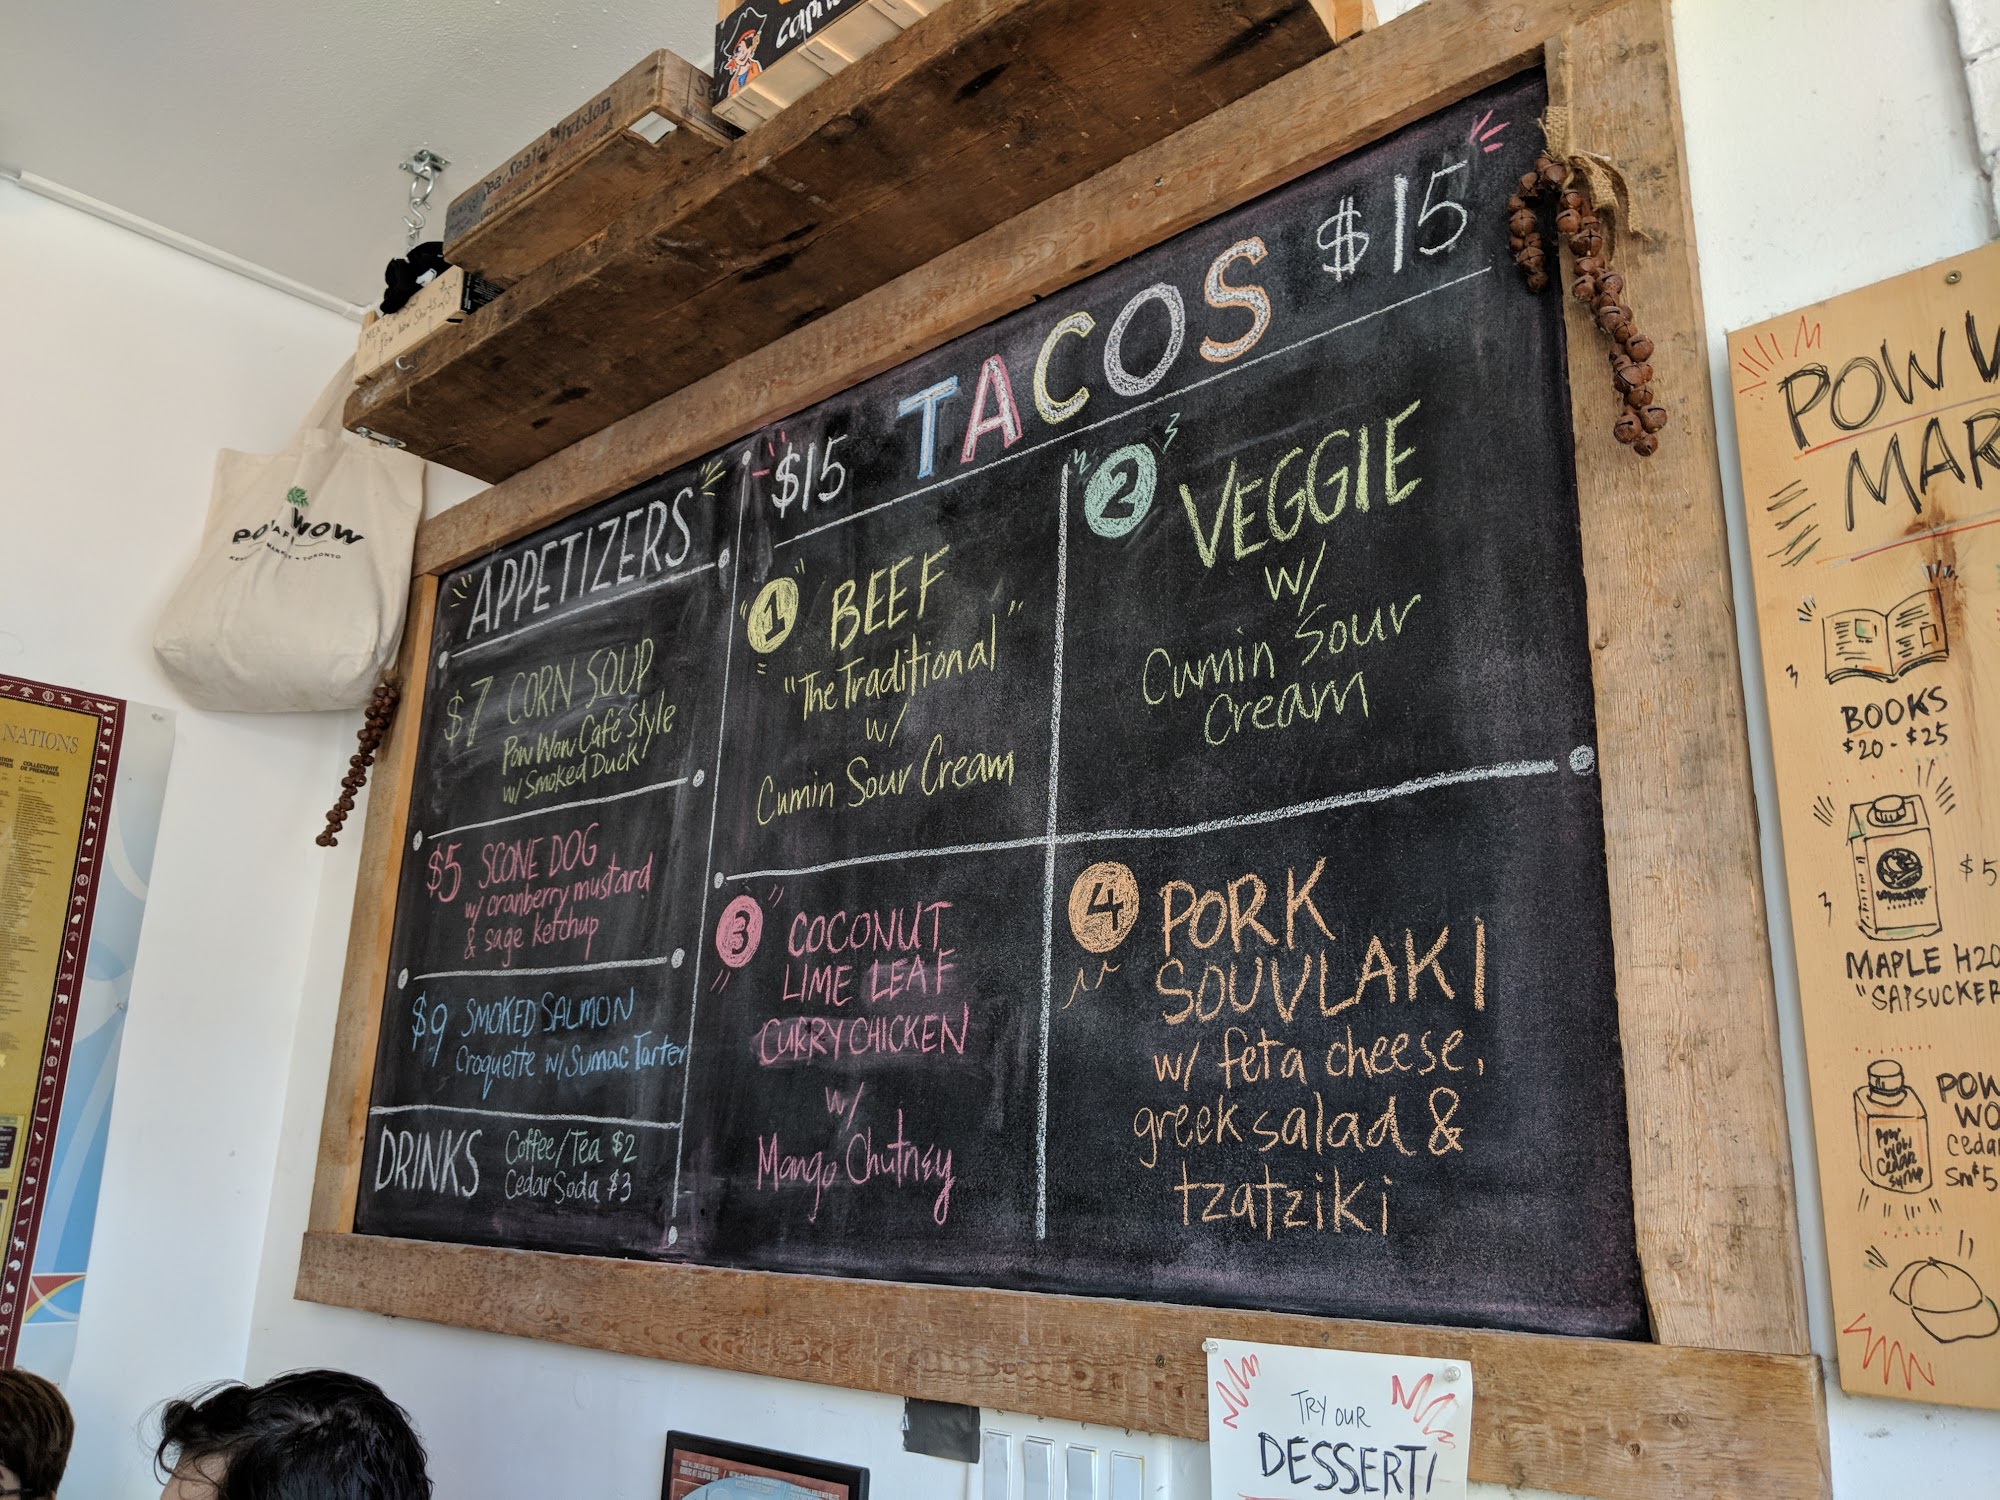 Seald
Division
POW WOW
MARKET • TORONTO
NATIONS
COLLECTIVITÉ
DE PREMIÈRES
$15 TACOS $15
APPETIZERS
$7 CORN SOUP
Pow Wow Café Style
w/ Smoked Duck
$5 SCONE DOG
w/ cranberry mustard
& sage ketchup
$9 SMOKED SALMON
Croquette w/ Sumac Tarter
DRINKS
Coffee/Tea $2
Cedar Soda $3
1 BEEF
"The Traditional"
w/
Cumin Sour Cream
2 VEGGIE
w/
Cumin Sour
Cream
3 COCONUT
LIME LEAF
CURRY CHICKEN
w/
Mango Chutney
4 PORK
SOUVLAKI
w/ feta cheese,
greek salad &
tzatziki
POW W
MAR
BOOKS
$20 - $25
$5
MAPLE H2O
"SAPSUCKER
POW
WO
Cedar
Sm $5
POW
WOW
Cedar
Syrup
TRY OUR
DESSERT!